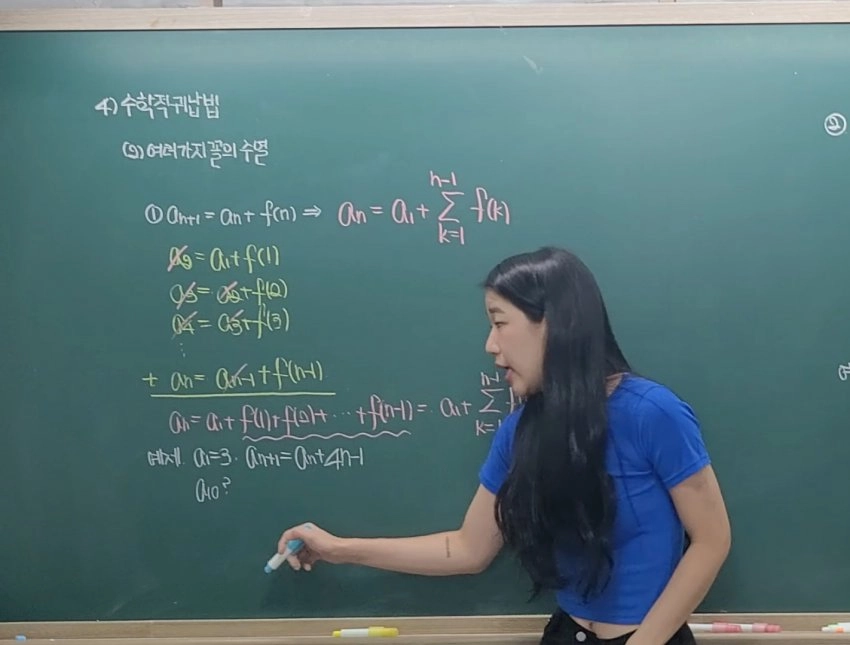 4) 수학적귀납법
(2) 여러가지 꼴의 수열
① aₙ₊₁ = aₙ + f(n) ⇒ aₙ = a₁ + ∑ₖ₌₁ⁿ⁻¹ f(k)
a₂ = a₁ + f(1)
a₃ = a₂ + f(2)
a₄ = a₃ + f(3)
⋮
+ aₙ = aₙ₋₁ + f(n-1)
aₙ = a₁ + f(1) + f(2) + ⋯ + f(n-1) = a₁ + ∑ₖ₌₁ⁿ⁻¹ f
예제. a₁=3. aₙ₊₁=aₙ+4n-1
a₁₀?
②